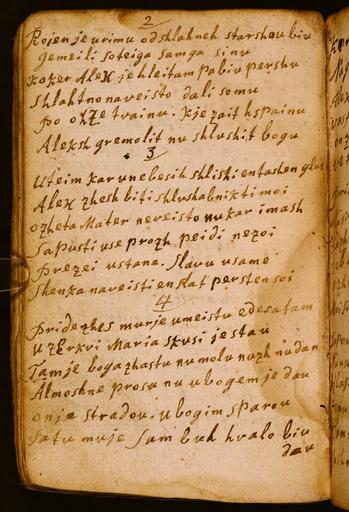 2
Rojen je urimu od shlahneh starshou biu
jemeili so teiga samga sinu
kokĕr Alex je hleitam pa biu pershu
shlahtno naveisto dali somu
po ozhe tvainu. kje zait h spainu
Aleksh gre molit nu shlushit bogu
3
Uteim kar unebesih shlishi en tashen glas
Alex zhesh biti shlushabnik ti moi
ozheta Mater neveisto nu kar imash
sapusti use prozh peidi nezoi
prezei ustane. Slavu usame
shenka naveisti en slat persten soi
4
pride zhes murje umeistu edesatam
uzerkvi Maria skusi je stau
Tam je boga zhastu nu molu nuzh nu dan
Almoshne prosu nu ubogem je dau
onje stradou. ubogim sparou
sa tu muje sam buh hvalo biu
dau